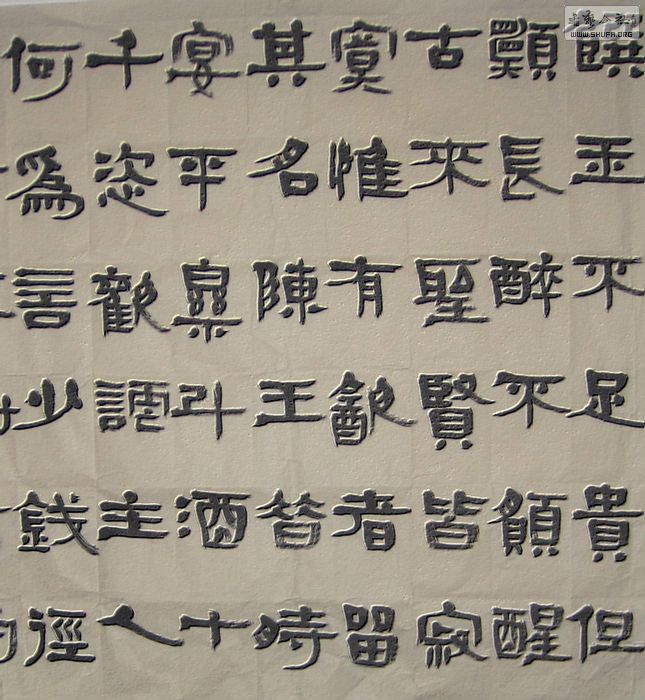 饌玉不足貴但
願長醉不願醒
古來聖賢皆寂
寞惟有飲者留
其名陳王昔時
宴平樂斗酒十
千恣歡謔主人
何為言少錢徑
WWW.SHUFA.ORG